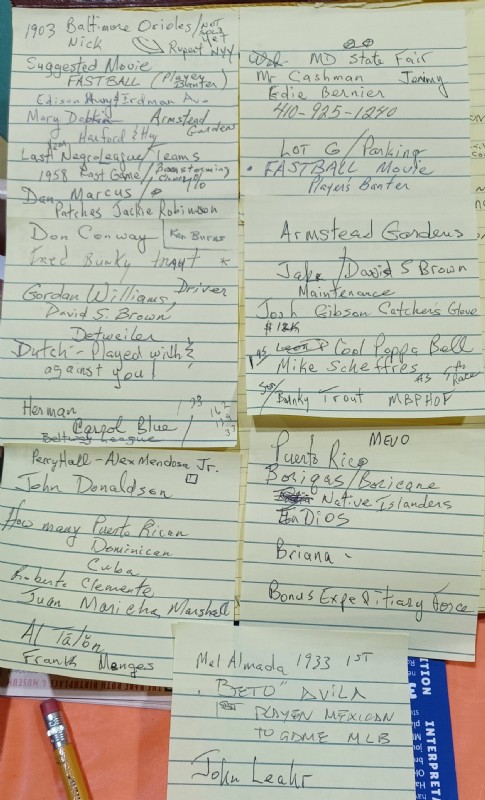 1903 Baltimore Orioles / NOT
Nick Rupert NYY
Suggested Movie
FASTBALL (Player Banter)
Edison Hwy & Erdman Av.
Mary Dobkin Armstead Gardens
Harford & Hwy
Last Negro league Teams
1958 East Game / Barnstorming
Dan Marcus
Patches Jackie Robinson
Don Conway Ken Burns
Fred Bunky Traut *
Gordan Williams, Driver
David S. Brown
Detweiler
Dutch - Played with &
against you!
Herman
Carrol Blue
Beltway League
Perry Hall - Alex Mendosa Jr.
John Donaldson
How many Puerto Rican
Dominican
Cuba
Roberto Clemente
Juan Maricha Marshall
Al Taton
Frank Menges
MD State Fair
Mr Cashman Jeremy
Edie Bernier
410-925-1240
LOT G / Parking
• FASTBALL Movie
Players Banter
Armstead Gardens
Jake / David S Brown
Maintenance
Josh Gibson Catchers Glove
$12K
Cool Pappa Bell
Mike Scheffres
Bunky Trout MBPHOF
MEVO
Puerto Rico
Borigas / Boricane
Native Islanders
EnDios
Briana -
Bonus Expeditiary Force
Mel Almada 1933 1ST
"BETO" AVILA
1ST PLAYER MEXICAN
TO GAME MLB
John Leahr
INTERPRET